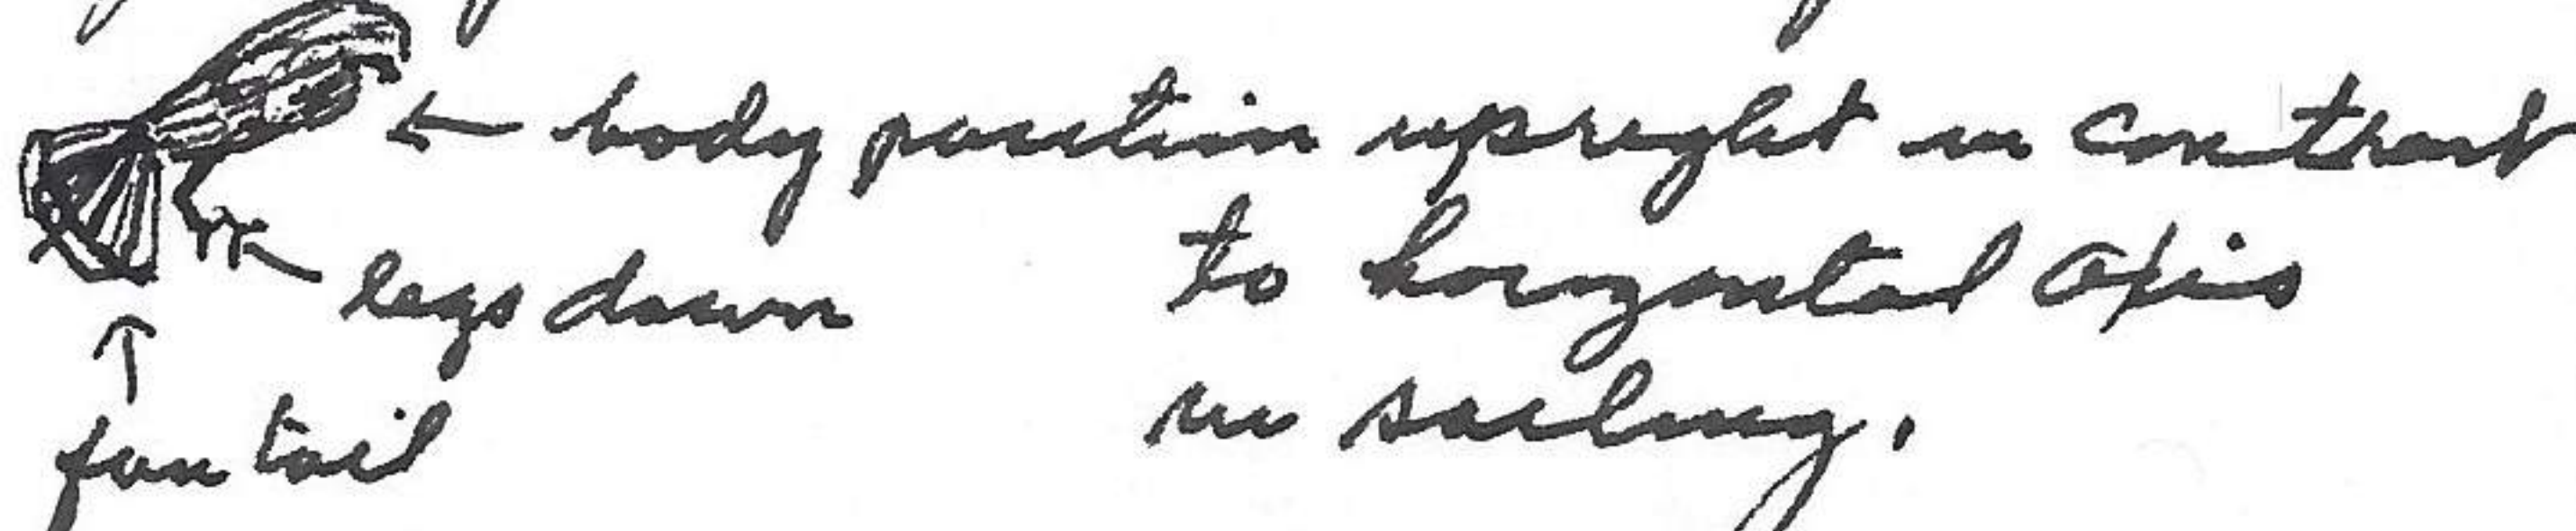 ← body position upright in contrast
to horizontal axis
in sailing.
← legs down
↑
fan tail